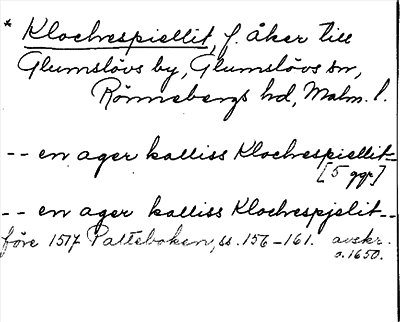 * Klochrespiellit, f. åker till
Glumslövs by, Glumslövs sn,
Rönnebergs hd, Malm. l.
-- en ager kalliss Klochrespiellit--
[5 ggr]
-- en ager kaliss Klochrespjelit--
före 1517 Palteboken, ss. 156-161. avskr.
o. 1650.